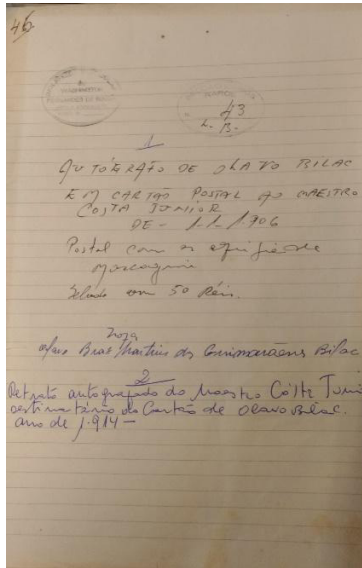 46
43
L. B.
1
AUTÓGRAFO DE OLAVO BILAC
EM CARTÃO POSTAL AO MAESTRO
COSTA JUNIOR
DE - 1-1-1906
Postal com a efígie de
Mascagni
Selado com 50 Réis.
Olavo Braz Martins dos Guimaraens Bilac
2
Retrato autografado do Maestro Costa Juni
destinatário do Cartão de Olavo Bilac.
ano de 1.914 -